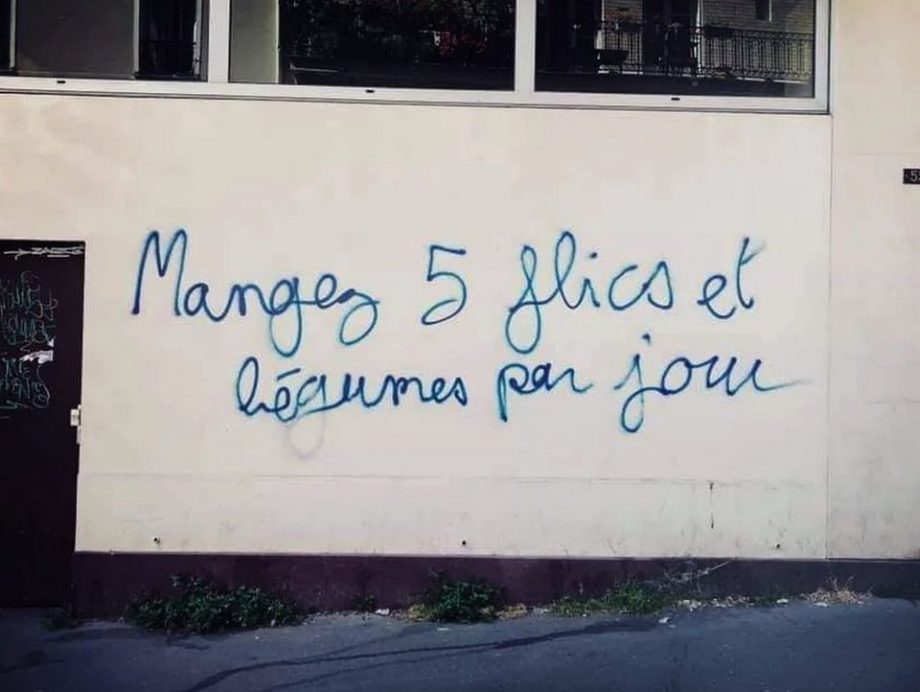 Mangez 5 flics et
légumes par jour